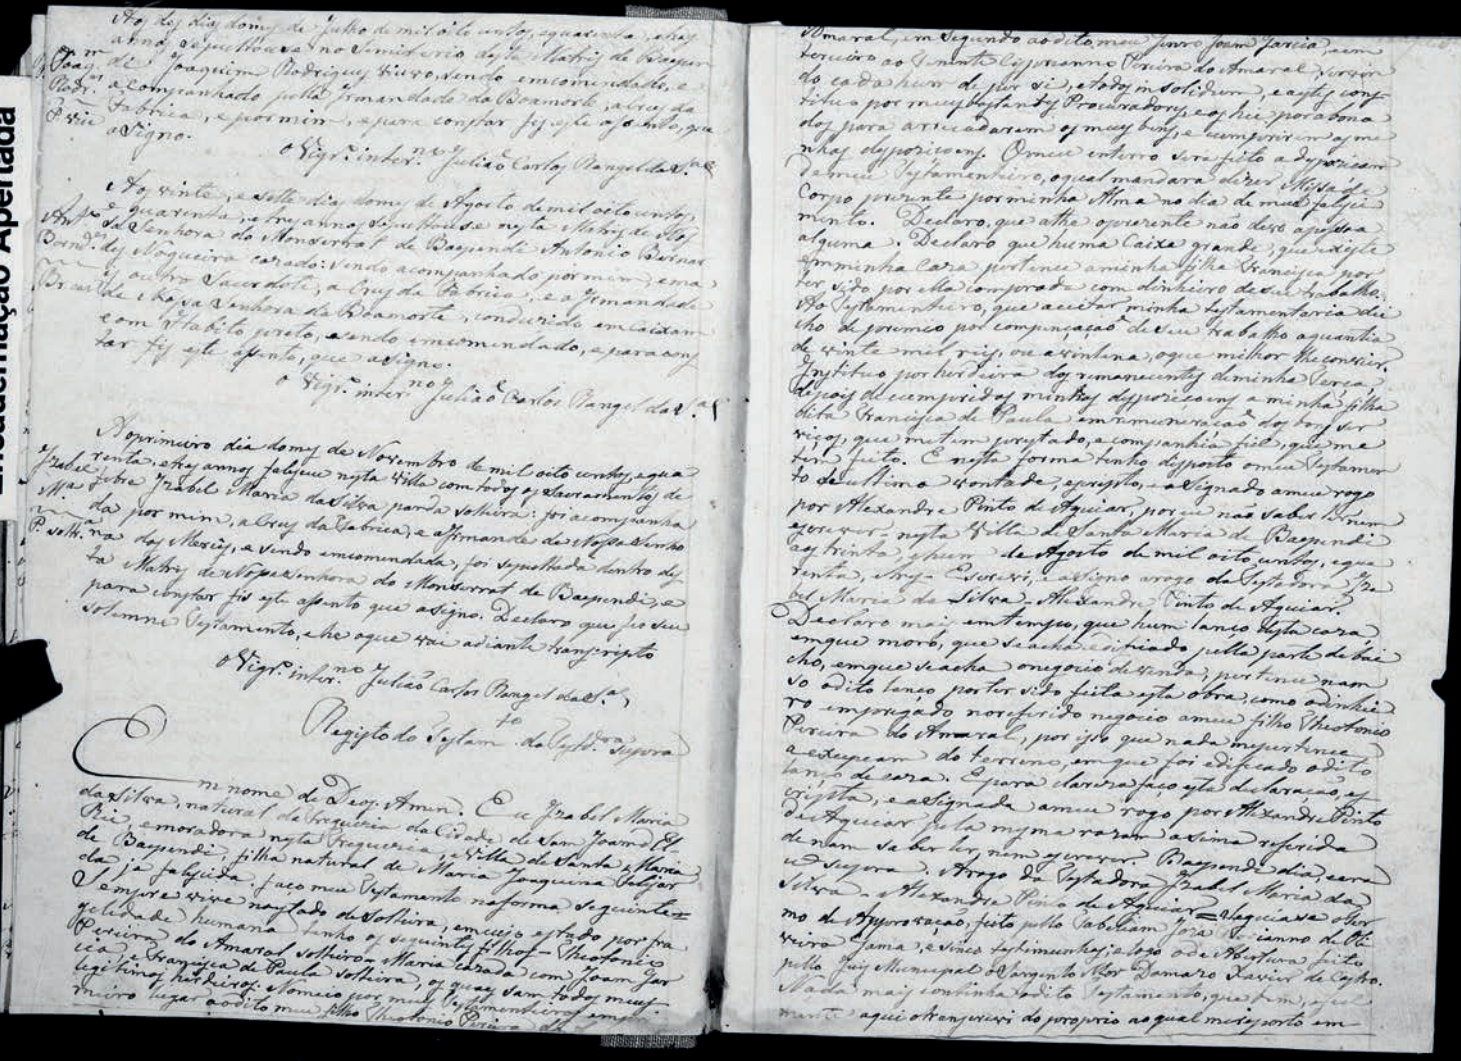 Aos dez dias do mes de Julho de mil oito centos, e quarenta, e tres
annos, sepultouse no Simiterio desta Matriz de Baepen
di Joaquim Rodrigues viuvo, sendo emcomendado, e
acompanhado pella Irmandade da Boamorte, a Cruz da
Fabrica, e por mim, e para constar fis este assento, que
asigno.
o Vigr.º inter.no Julião Carlos Rangel da S.ª
Joaq.m
Rodr.s
P. viu
Aos vinte, e sette dias do mes de Agosto de mil oito centos,
e quarenta, e tres annos sepultouse nesta Matriz de Nos
sa Senhora do Monserrat de Baependi Antonio Bernar
des Nogueira cazado: sendo acompanhado por mim, e ma
is outro Sacerdote, a Cruz da Fabrica, e a Irmandade
de Nossa Senhora da Boamorte, conduzido em Caixam
com Habito preto, e sendo emcomendado, e para cons
tar fis este assento, que asigno.
o Vigr.º inter.no Julião Carlos Rangel da S.ª
Ant.º
Bernd.
Br. cas
Ao primeiro dia do mes de Novembro de mil oito centos, e qua
renta, e tres annos faleceu nesta Villa com todos os Sacramentos de
febre Izabel Maria da Silva, parda solteira: foi acompanha
da por mim, a Cruz da Fabrica, e a Irmande de Nossa Senho
ra das Mercês, e sendo emcomendada, foi sepultada dentro des
ta Matriz de Nossa Senhora do Monserrat de Baependi, e
para constar fis este assento que asigno. Declaro que fes seu
solemne Testamento, e he o que vai adiante transcripto
o Vigr.º inter.no Julião Carlos Rangel da S.ª
Izabel
M.ª
P. soltr.ª
Registo do Testam.to da Testd.ra supra
Em nome de Deos. Amen. Eu Izabel Maria
da Silva, natural da Freguezia da Cidade de Sam Joam d'El
Rei, e moradora nesta Freguezia, e Villa de Santa Maria
de Baependi, filha natural de Maria Joaquina
da já falescida faco meu Testamento na forma seguinte=
Sempre vivi no estado de Solteira, em cujo estado por fra
gelidade humana tenho os seguintes filhos = Theotonio
Pereira do Amaral solteiro = Maria cazada com Joam Gar
cia, e Francisca de Paula solteira, os quaes sam todos meus
legitimos herdeiros. Nomeio por meus Testamenteiros em pri
meiro lugar ao dito meu filho Theotonio Pereira do
Amaral, em segundo ao dito meu Genro Joam Garcia, e em
terceiro ao Tenente Cyprianno Pereira do Amaral, servin
do cada hum de per si, e todos in solidum, e a estes cons
tituo por meus bastantes Procuradores, e os hei por abona
dos para arrecadarem os meus bens, e cumprirem as mi
nhas dispozicoens. O meu enterro sera feito a dispozicam
de meu Testamenteiro, o qual mandara dizer Missa de
Corpo prezente por minha Alma no dia de meu falesci
mento. Declaro, que athe o prezente não devo a pessoa
alguma. Declaro que huma Caixa grande, que existe
em minha Caza pertence a minha filha Francisca por
ter sido por ella comprada com dinheiro de seu trabalho.
Ao Testamenteiro, que aceitar minha testamentaria dei
cho de premio por compençação de seu trabalho a quantia
de vinte mil reis, ou a vintena, o que milhor lhe convier.
Instituo por herdeira dos remanecentes de minha Terca
depois de cumpridas minhas dispozicoens a minha filha
dita Francisca de Paula em remuneracão dos bons ser
vicos, que me tem prestado, e companhia fiel, que me
tem feito. E nesta forma tenho disposto o meu Testamen
to de ultima vontade, escripto, e asignado a meu rogo
por Alexandre Pinto de Aguiar, por eu não saber ler, nem
escrever = nesta Villa de Santa Maria de Baependi
aos trinta, e hum de Agosto de mil oito centos, e qua
renta, e tres = Escrevi, e asigno a rogo da Testadora Iza
bel Maria da Silva = Alexandre Pinto de Aguiar.
Declaro mais em tempo, que hum lanco desta caza,
em que moro, que se acha edificado pella parte de bai
cho, em que se acha o negocio de venda, pertence nam
so o dito lanco por ter sido feita esta obra, como o dinhei
ro empregado no referido negocio a meu filho Theotonio
Pereira do Amaral, por isso que nada me pertence
a excepcam do terreno, em que foi edificado o dito
lanço de caza. E para clareza faço esta declaracão, es
cripta, e asignada a meu rogo por Alexandre Pinto
de Aguiar pela mesma razam asima referida
de nam saber ler, nem escrever. Baependi dia, e era
ut supra. A rogo da Testadora Izabel Maria da
Silva = Alexandre Pinto de Aguiar = Seguiase o Ter
mo de Approvação, feito pello Tabeliam ianno de Oli
veira Gama, e sinco testimunhas; e logo o de Abertura feito
pello Juiz Municipal o Sargento Mor Damazo Xavier de Castro.
Nada mais continha o dito Testamento, que bem, e fiel
mente aqui o transcrevi do proprio ao qual me reporto em